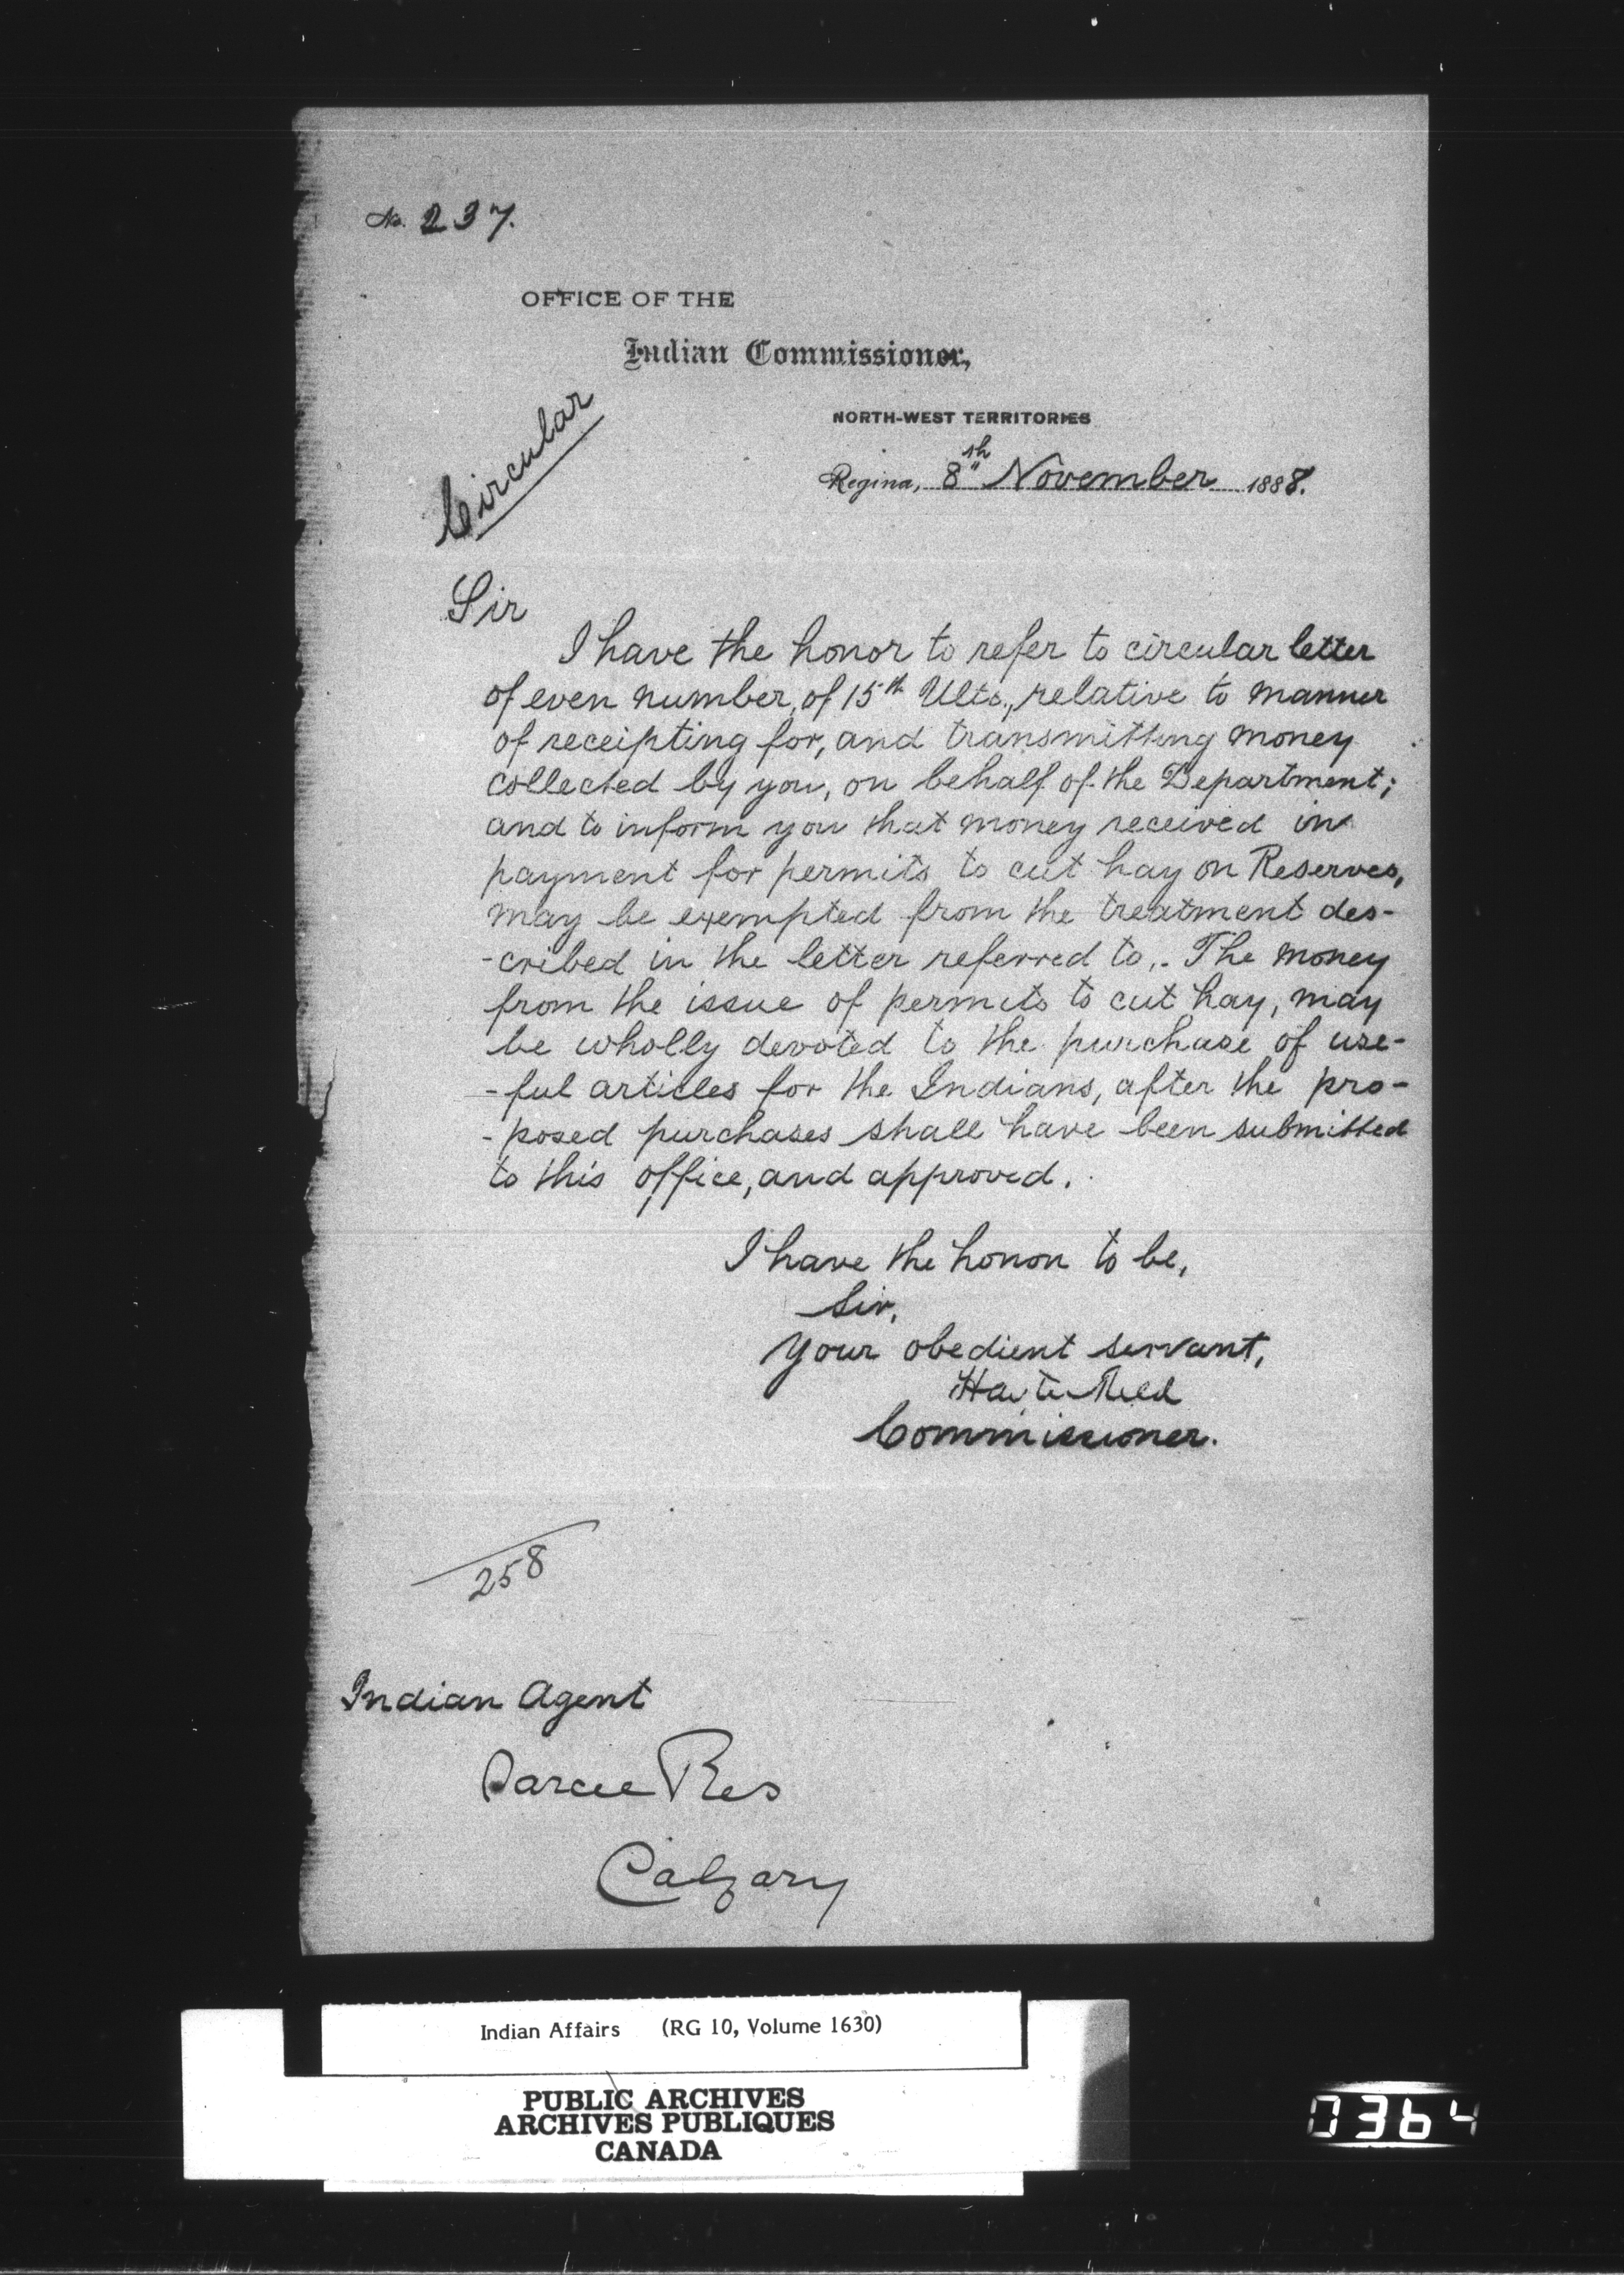 No. 237.
OFFICE OF THE
Indian Commissioner,
NORTH-WEST TERRITORIES
Circular
Regina, 8th November 1888.
Sir
I have the honor to refer to circular letter
of even number, of 15th Ulto., relative to manner
of receipting for, and transmitting money
collected by you, on behalf of the Department;
and to inform you that money received in
payment for permits to cut hay on Reserves,
may be exempted from the treatment des-
-cribed in the letter referred to,. The money
from the issue of permits to cut hay, may
be wholly devoted to the purchase of use-
-ful articles for the Indians, after the pro-
-posed purchases shall have been submitted
to this office, and approved.
I have the honor to be,
Sir,
Your obedient servant,
Hayter Reed
Commissioner.
258
Indian Agent
Sarcee Res
Calgary
Indian Affairs (RG 10, Volume 1630)
PUBLIC ARCHIVES
ARCHIVES PUBLIQUES
CANADA
0364